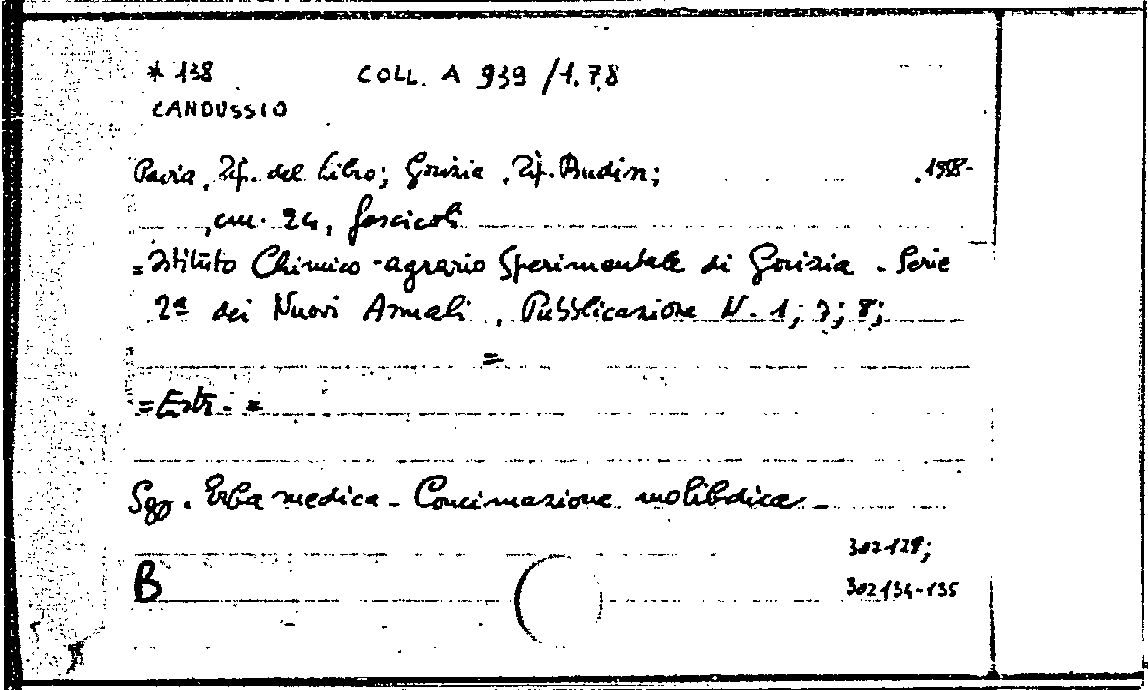 * 138 COLL. A 939 /1.7.8
CANDUSSIO
Pavia, Tip. del Libro; Gorizia, Tip. Budin; , 1958-
, cm. 24, fascicoli
= Istituto Chimico-agrario Sperimentale di Gorizia - Serie
2ª dei Nuovi Annali, Pubblicazione N. 1; 7; 8;
=
= Estr. =
Sgg. Erba medica - Concimazione molibdica -
302129;
B 302134-135